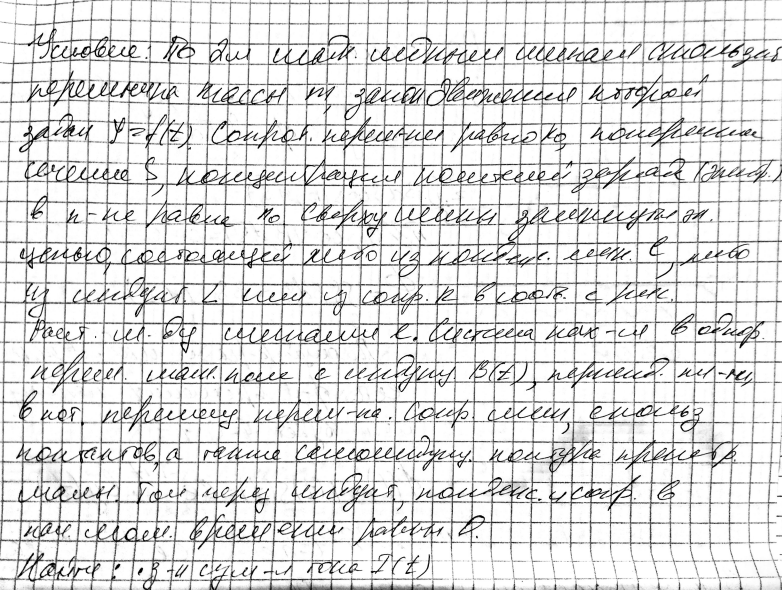 Условие: По 2м глад. медным шинам скользит
перемычка массы m, закон движения которой
задан y=f(t). Сопрот. перем-ки равно R₀, поперечн.
сечение S, концентрация носителей заряда (электр.)
в п-ке равна n₀. Сверху шины замкнуты эл.
цепью, состоящей либо из конденс. емк. C, либо
из индукт. L или из сопр. R в соотв. с рис.
Расст. м-ду шинами l. Система нах-ся в однор.
перем. магн. поле с индукц. B(t), перпенд. пл-ти,
в кот. перемещ. перем-ка. Сопр. шин, скольз.
контактов, а также самоиндукц. контура пренебр.
малы. Ток через индукт., конденс. и сопр. в
нач. мом. времени равны 0.
Найти: · з-н сум-го тока I(t)